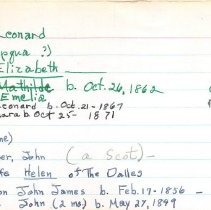 Leonard
pqua :)
Elizabeth
Mathilde b. Oct. 26, 1862
Emelia
eonard b. Oct. 21-1867
ara b Oct 25- 1871
me)
er, John (a Scot) -
fe Helen of The Dalles
on John James b. Feb. 17-1856 -
John (2 ms) b. May 27, 1899